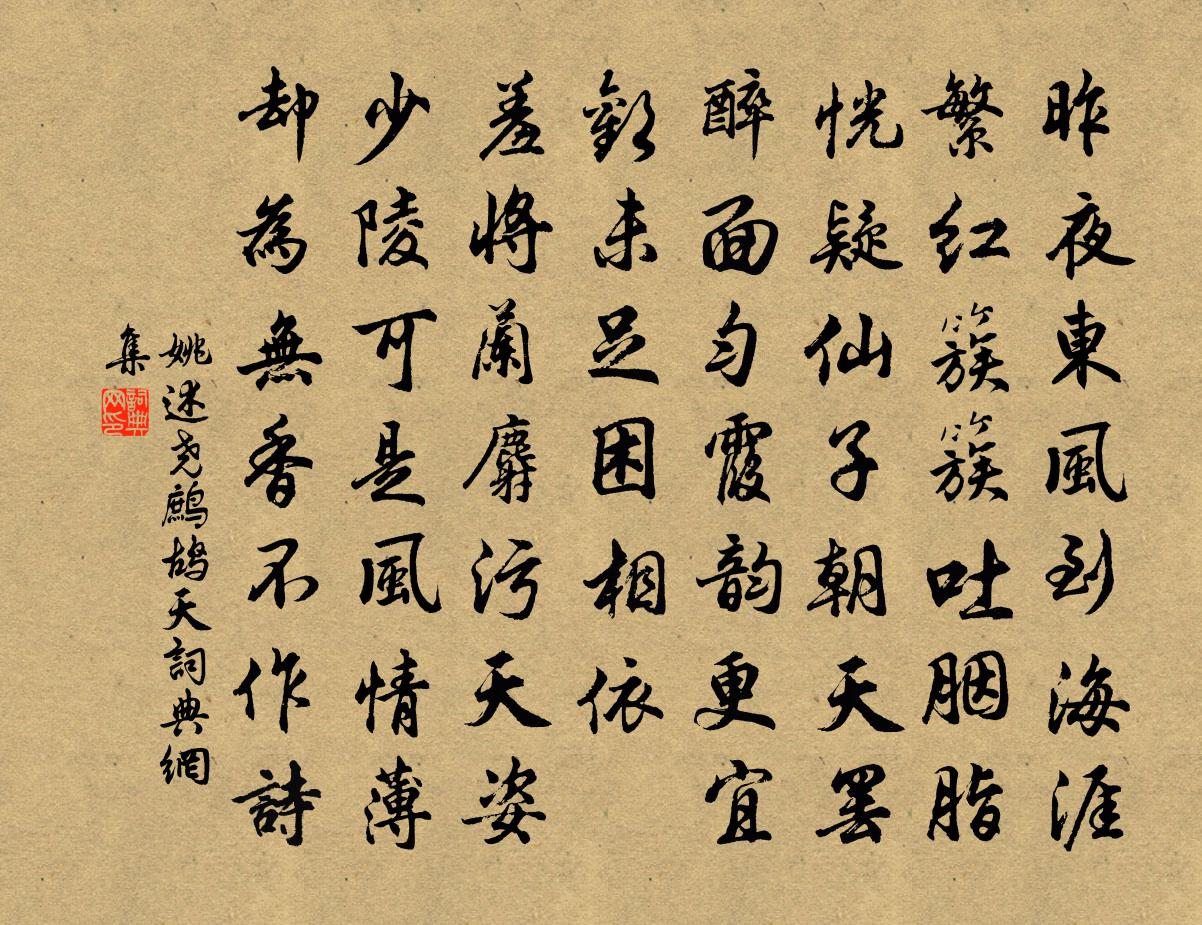 昨夜東風到海涯
繁紅簇簇吐胭脂
恍疑仙子朝天罷
醉面勻霞韵更宜
歡未足困相依
羞將蘭麝污天姿
少陵可是風情薄
却為無香不作詩
姚述堯鷓鴣天詞典網
集
詞典網印